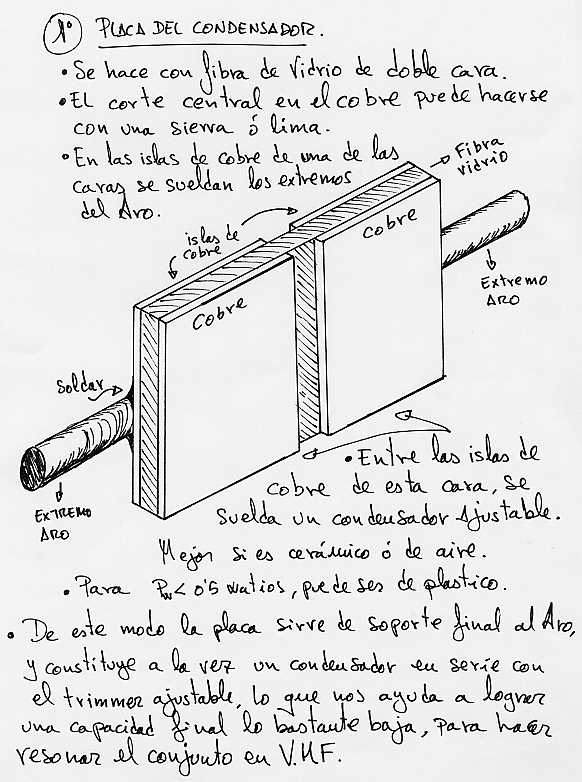 1º PLACA DEL CONDENSADOR.
• Se hace con fibra de vidrio de doble cara.
• EL corte central en el cobre puede hacerse
con una sierra ó lima.
• En las islas de cobre de una de las
caras se sueldan los extremos
del Aro.
Fibra
vidrio
islas de
cobre
cobre
cobre
Extremo
ARO
Soldar
EXTREMO
ARO
• Entre las islas de
cobre de esta cara, se
suelda un condensador Ajustable.
Mejor si es cerámico ó de aire.
• Para Pw < 0'5 watios, puede ser de plastico.
• De este modo la placa sirve de soporte final al Aro,
y constituye a la vez un condensador en serie con
el trimmer ajustable, lo que nos ayuda a lograr
una capacidad final lo bastante baja, para hacer
resonar el conjunto en V.H.F.